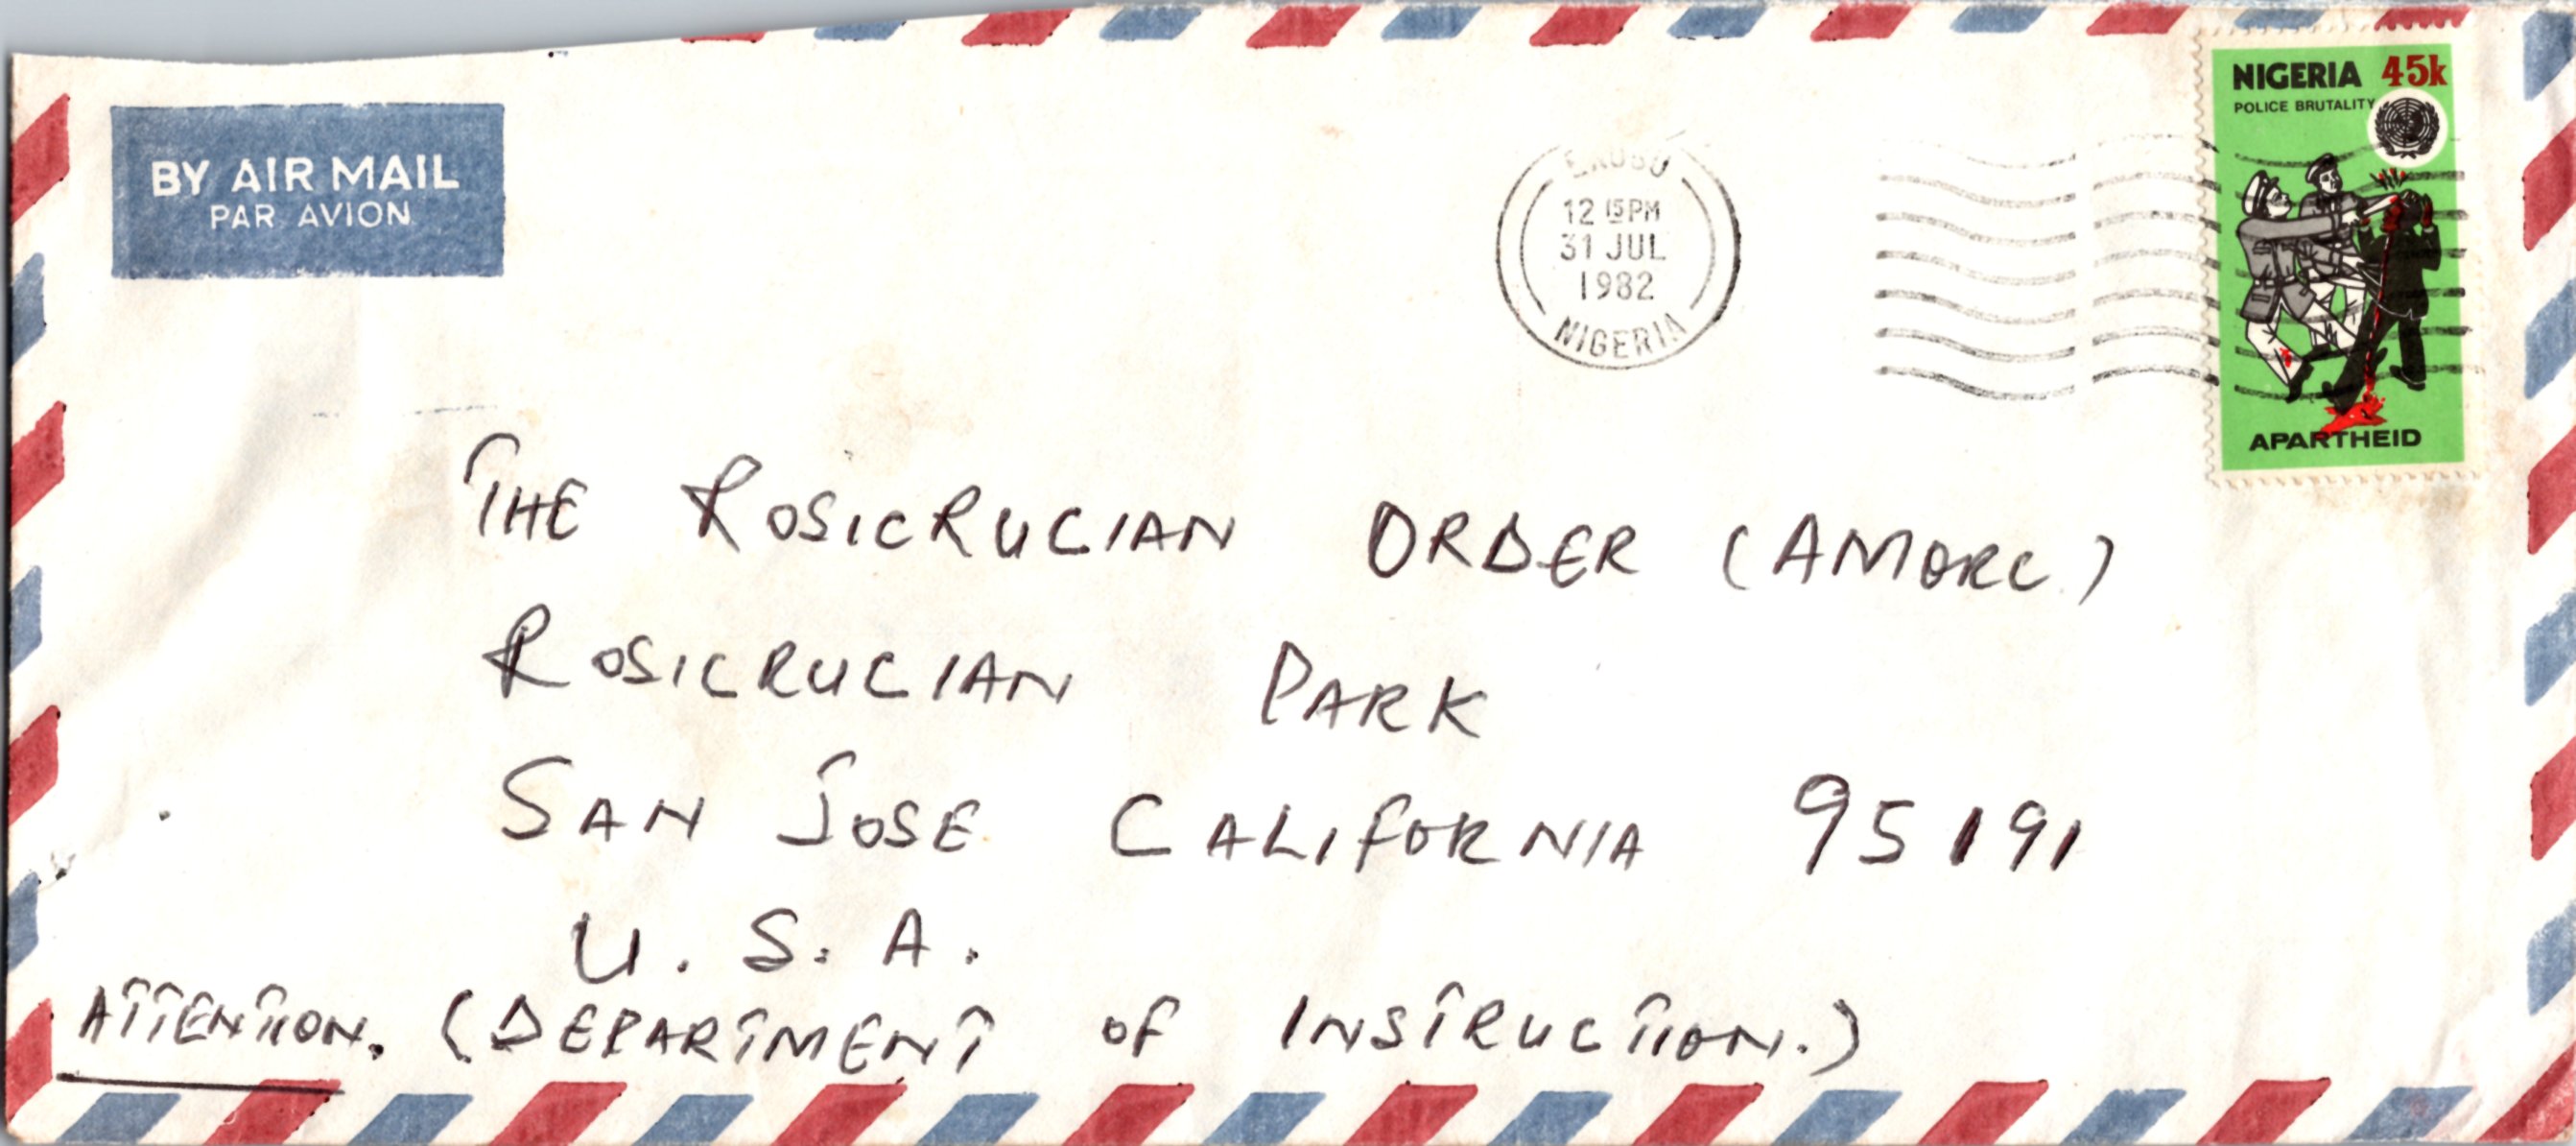 BY AIR MAIL
PAR AVION
12 15PM
31 JUL
1982
NIGERIA
NIGERIA 45k
POLICE BRUTALITY
APARTHEID
THE ROSICRUCIAN ORDER (AMORC)
ROSICRUCIAN PARK
SAN JOSE CALIFORNIA 95191
U.S.A.
ATTENTION. (DEPARTMENT OF INSTRUCTION.)